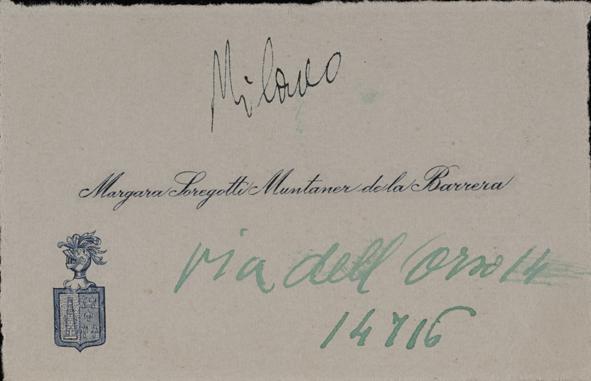 Milano
Margara Soregotti Muntaner de la Barrera
Via dell Orso 14
14716